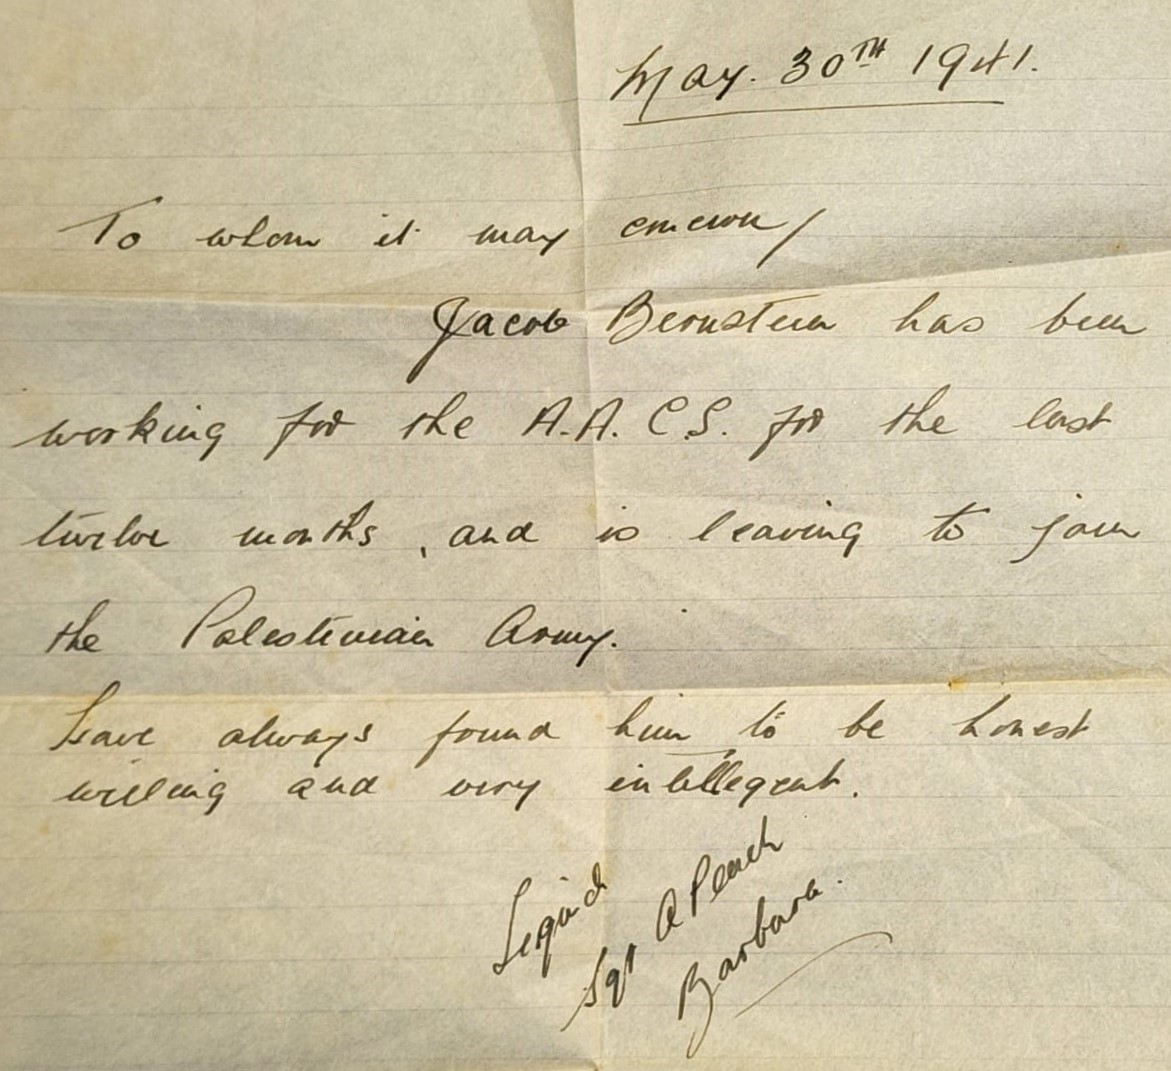 May. 30TH 1941.
To whom it may concern,
Jacob Bernstein has been
working for the A.A.C.S. for the last
twelve months, and is leaving to join
the Palestinian Army.
Have always found him to be honest
willing and very intellegent.
Signed
Sgt A Peach
Barbara.